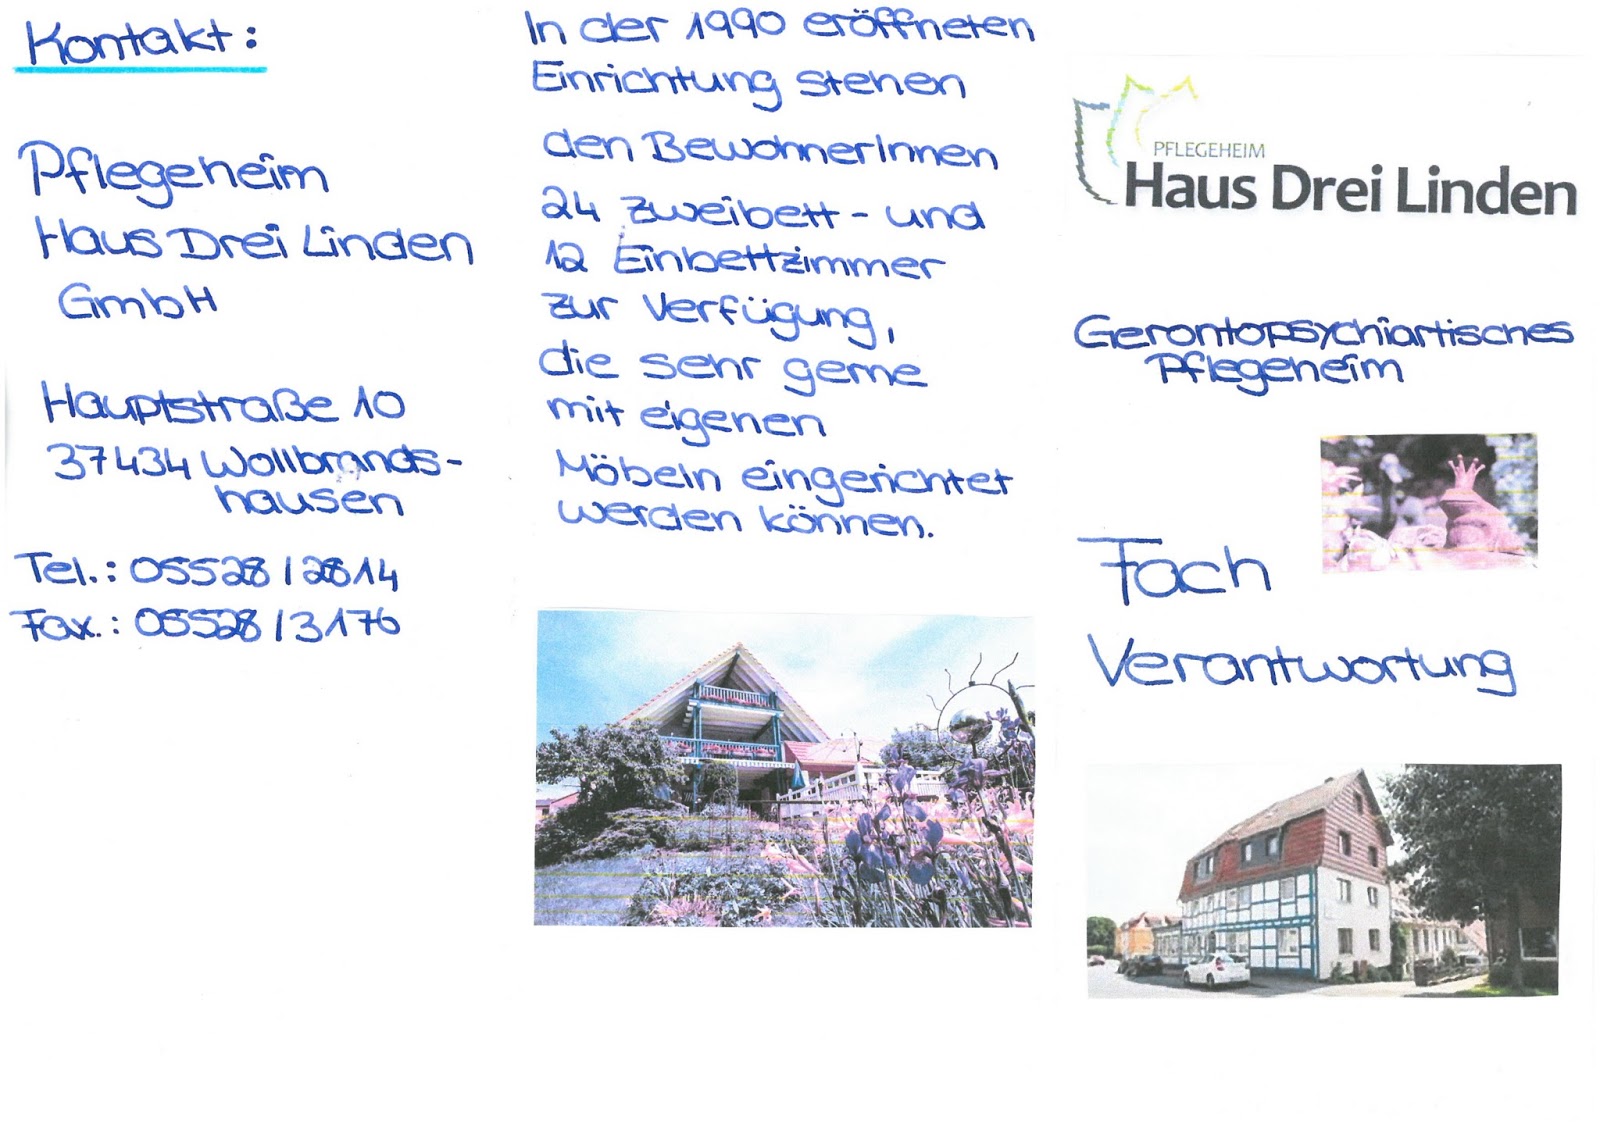 Kontakt:
Pflegeheim
Haus Drei Linden
GmbH
Hauptstraße 10
37434 Wollbrands-
hausen
Tel.: 05528 / 2814
Fax.: 05528 / 3176
In der 1990 eröffneten
Einrichtung stehen
den BewohnerInnen
24 Zweibett- und
12 Einbettzimmer
zur Verfügung,
die sehr gerne
mit eigenen
Möbeln eingerichtet
werden können.
PFLEGEHEIM
Haus Drei Linden
Gerontopsychiartisches
Pflegeheim
Fach
Verantwortung